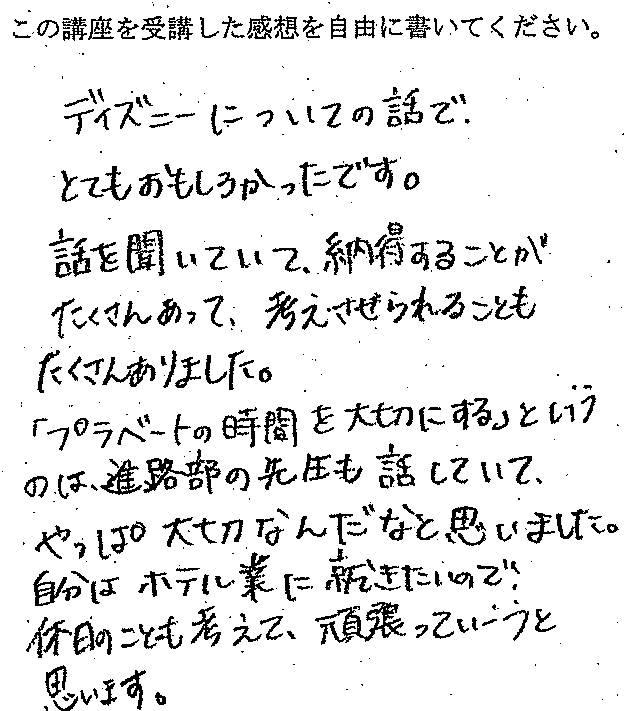 この講座を受講した感想を自由に書いてください。
ディズニーについての話で、
とてもおもしろかったです。
話を聞いていて、納得することが
たくさんあって、考えさせられることも
たくさんありました。
「プラベートの時間を大切にする」という
のは、進路部の先生も話していて、
やっぱ大切なんだなと思いました。
自分はホテル業に就きたいので、
休日のことも考えて、頑張っていこうと
思います。